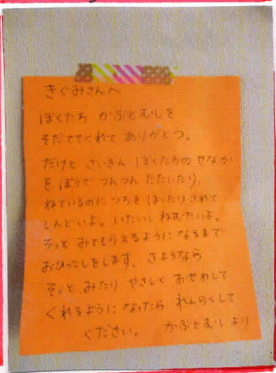 きぐみさんへ
ぼくたち かぶとむしを
そだててくれて ありがとう。
だけど さいきん ぼくたちの せなか
を ぼうで つんつん たたいたり、
ねているのに つちを ほったり されて
しんどいよ。いたいし ねむたいよ。
そっと みてもらえるように なるまで
おひっこしをします。さようなら
そっと みたり やさしく おせわして
くれるように なったら れんらくして
ください。 かぶとむし より